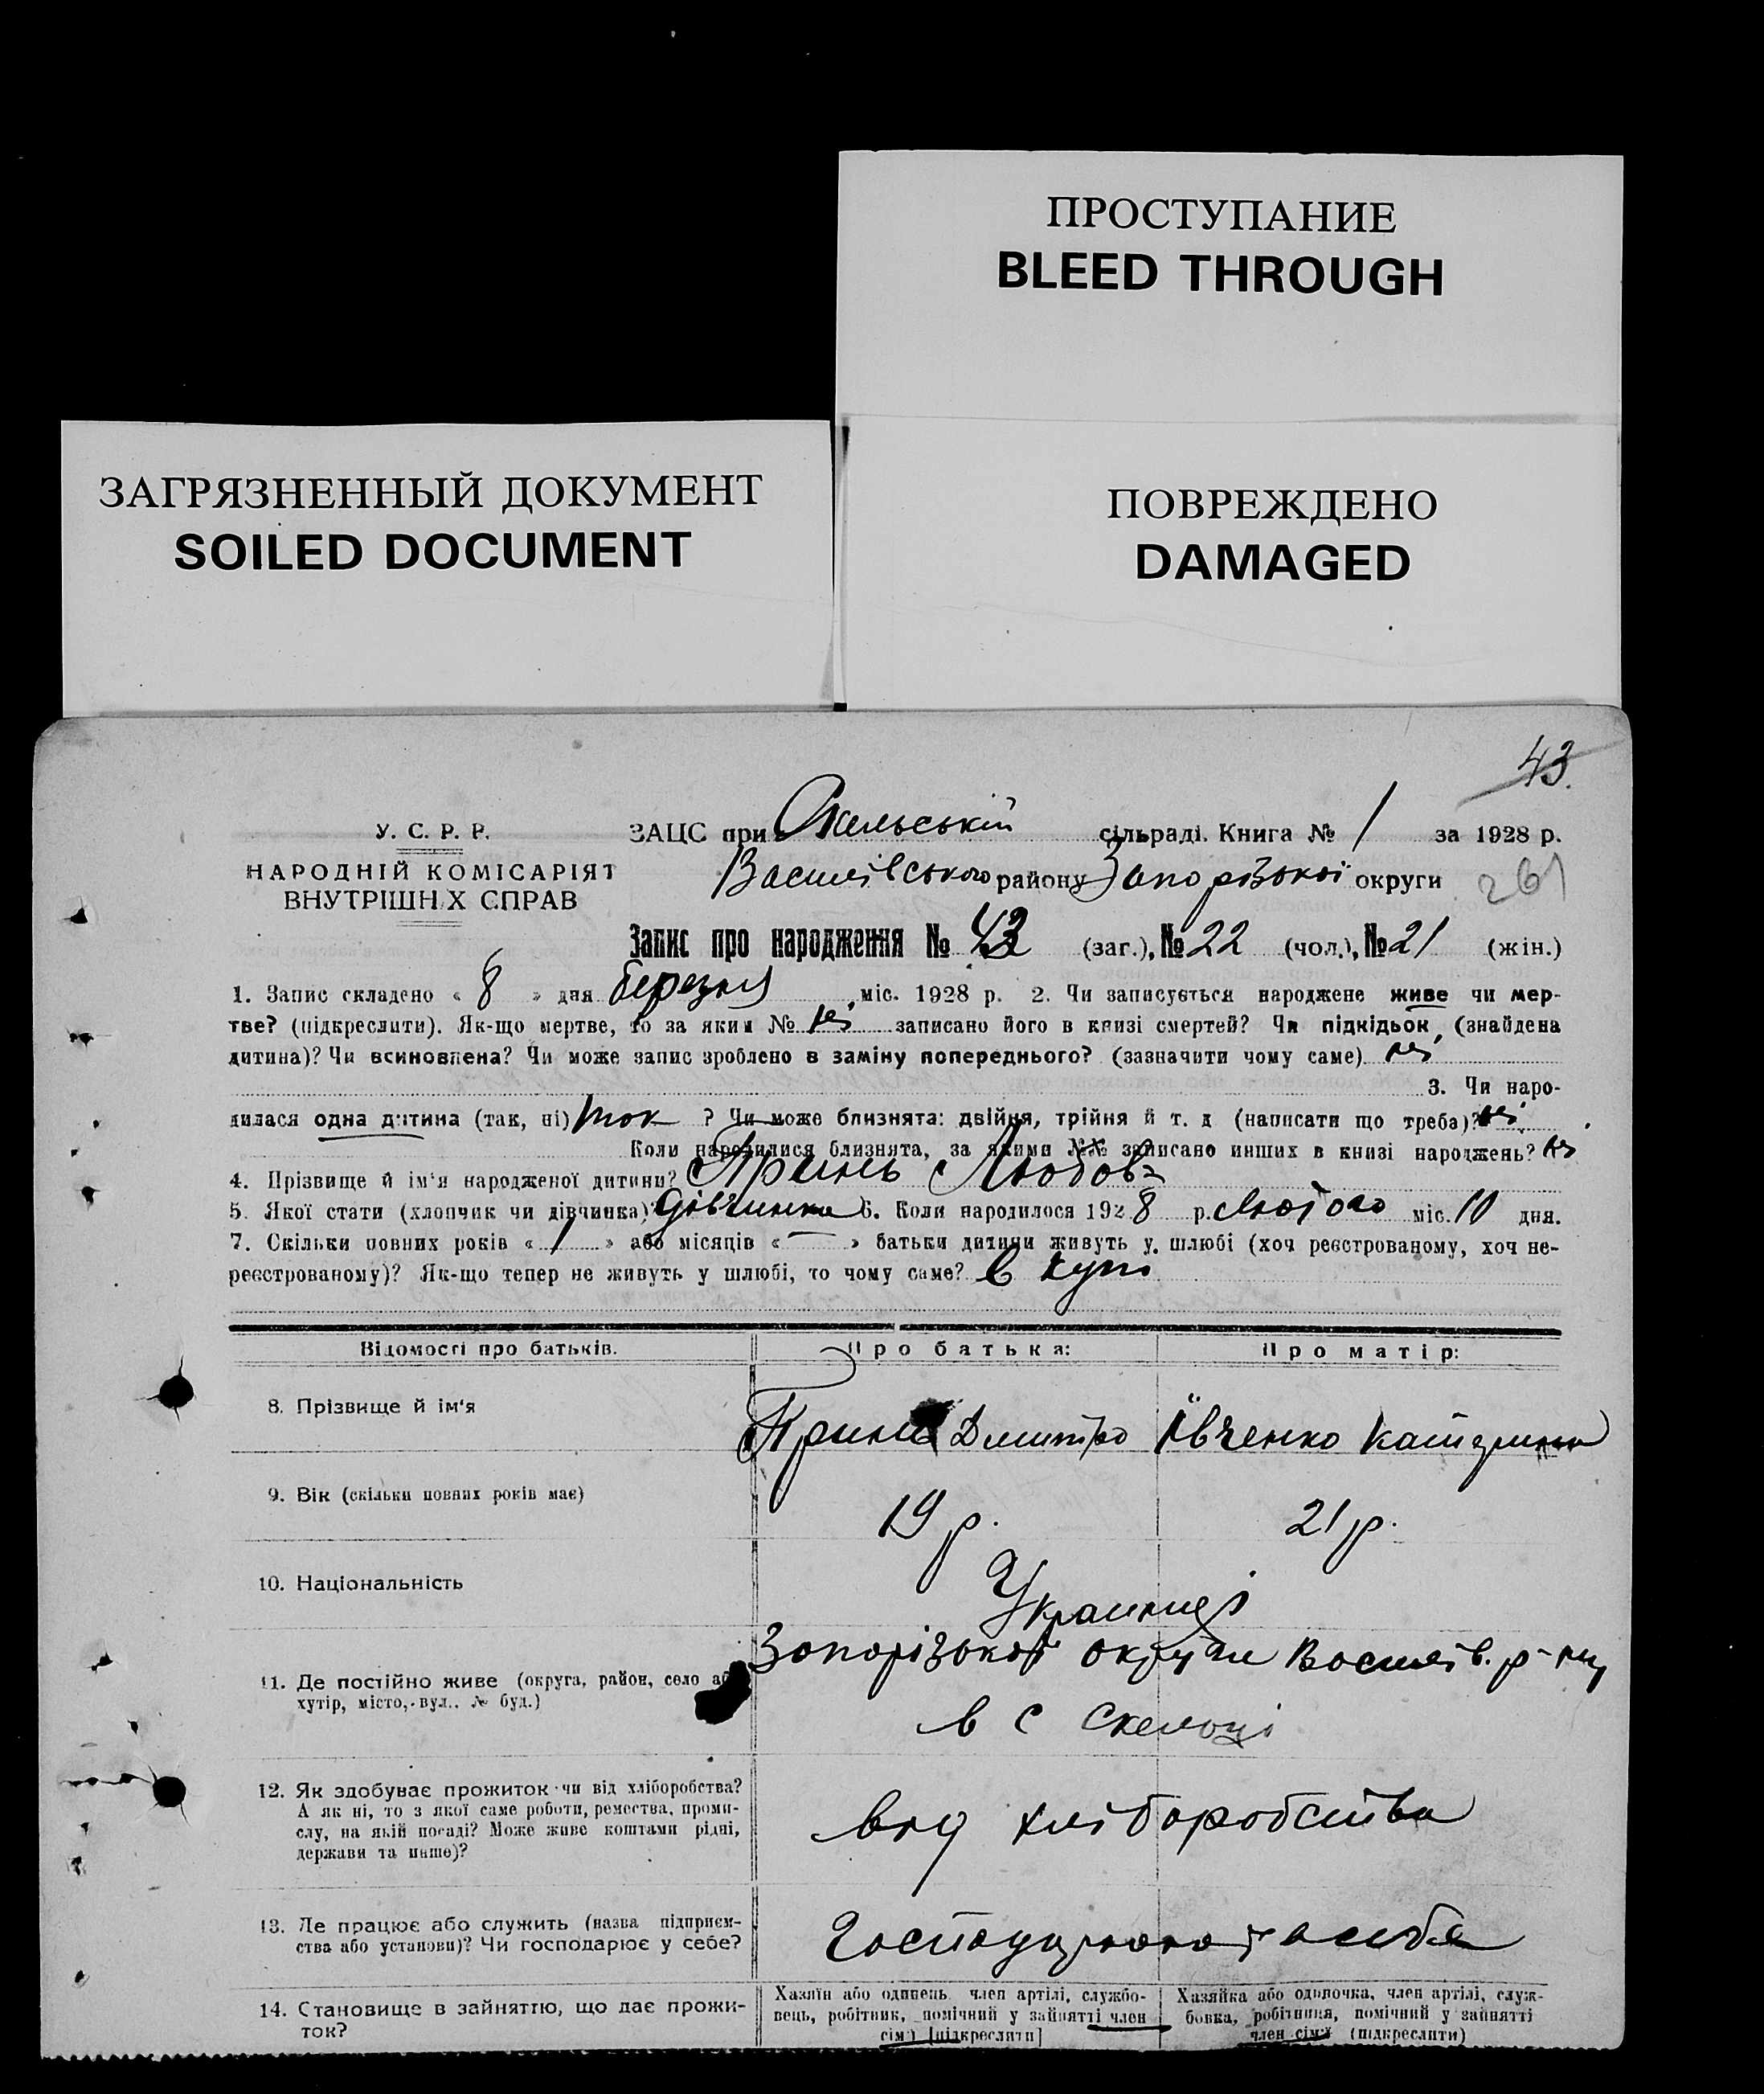 ПРОСТУПАНИЕ
BLEED THROUGH
ЗАГРЯЗНЕННЫЙ ДОКУМЕНТ
SOILED DOCUMENT
ПОВРЕЖДЕНО
DAMAGED
43.
У. С. Р. Р.
НАРОДНІЙ КОМІСАРІЯТ
ВНУТРІШНІХ СПРАВ
ЗАЦС при Скельській сільраді. Книга № 1 за 1928 р.
Василівського району Запорізької округи 261
Запис про народження № 43 (заг.), № 22 (чол.), № 21 (жін.)
1. Запис складено « 8 » дня березня міс. 1928 р. 2. Чи записується народжене живе чи мер-
тве? (підкреслити). Як-що мертве, то за яким № ні записано його в книзі смертей? Чи підкідьок, (знайдена
дитина)? Чи всиновлена? Чи може запис зроблено в заміну попереднього? (зазначити чому саме) ні
3. Чи наро-
дилася одна дитина (так, ні) так ? Чи може близнята: двійня, трійня й т. д (написати що треба)? ні
Коли народилися близнята, за якими №№ записано инших в книзі народжень? ні
4. Прізвище й ім'я народженої дитини? Любовь
5. Якої стати (хлопчик чи дівчинка)? дівчинка 6. Коли народилося 1928 р. лютого міс. 10 дня.
7. Скільки повних років « 1 » або місяців « — » батьки дитини живуть у шлюбі (хоч реєстрованому, хоч не-
реєстрованому)? Як-що тепер не живуть у шлюбі, то чому саме? в купі
Відомості про батьків. Про батька: Про матір:
8. Прізвище й ім'я Дмитро Івченко Катерина
9. Вік (скільки повних років має) 19 р. 21 р.
10. Національність Украинці
11. Де постійно живе (округа, район, село або Запорізької округи Василів. р-ну
хутір, місто, вул., № буд.) в с Скельці
12. Як здобуває прожиток чи від хліборобства?
А як ні, то з якої саме роботи, ремества, проми-
слу, на якій посаді? Може живе коштами рідні, від хліборобства
держави та инше)?
13. Де працює або служить (назва підприєм-
ства або установи)? Чи господарює у себе? у себе
14. Становище в зайняттю, що дає прожи-
ток?
Хазяїн або одинець, член артілі, службо-
вець, робітник, помічний у зайнятті член
сім'ї [підкреслити]
Хазяйка або одиночка, член артілі, служ-
бовка, робітниця, помічний у зайнятті
член сім'ї (підкреслити)